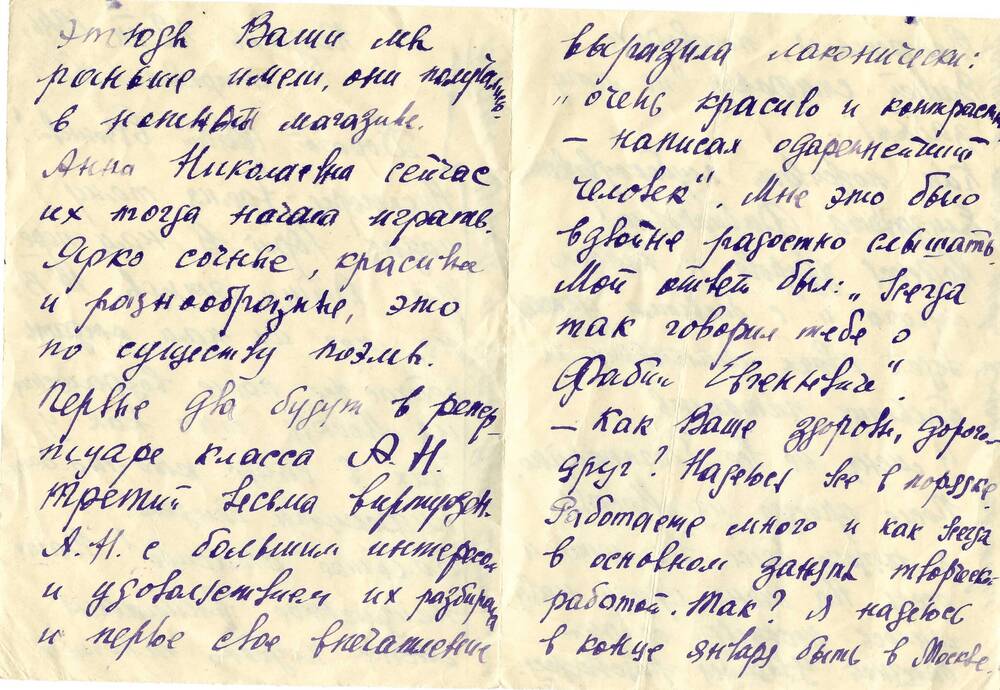 Этюды Ваши мы
раньше имели, они получены
в нотном магазине.
Анна Николаевна сейчас
их тогда начала играть.
Ярко сочные, красивые
и разнообразные, это
по существу поэмы.
Первые два будут в репер-
туаре класса А.Н.
Третий весьма виртуозен.
А.Н. с большим интересом
и удовольствием их разбирала
и первое свое впечатление
выразила лаконически:
„очень красиво и контрастно
— написал одареннейший
человек“. Мне это было
вдвойне радостно слышать.
Мой ответ был: „Всегда
так говорил тебе о
Фабии Евгеньевиче“.
— Как Ваше здоровье, дорогой
друг? Надеюсь все в порядке.
Работаете много и как всегда
в основном заняты творческой
работой. Так? Я надеюсь
в конце января быть в Москве.